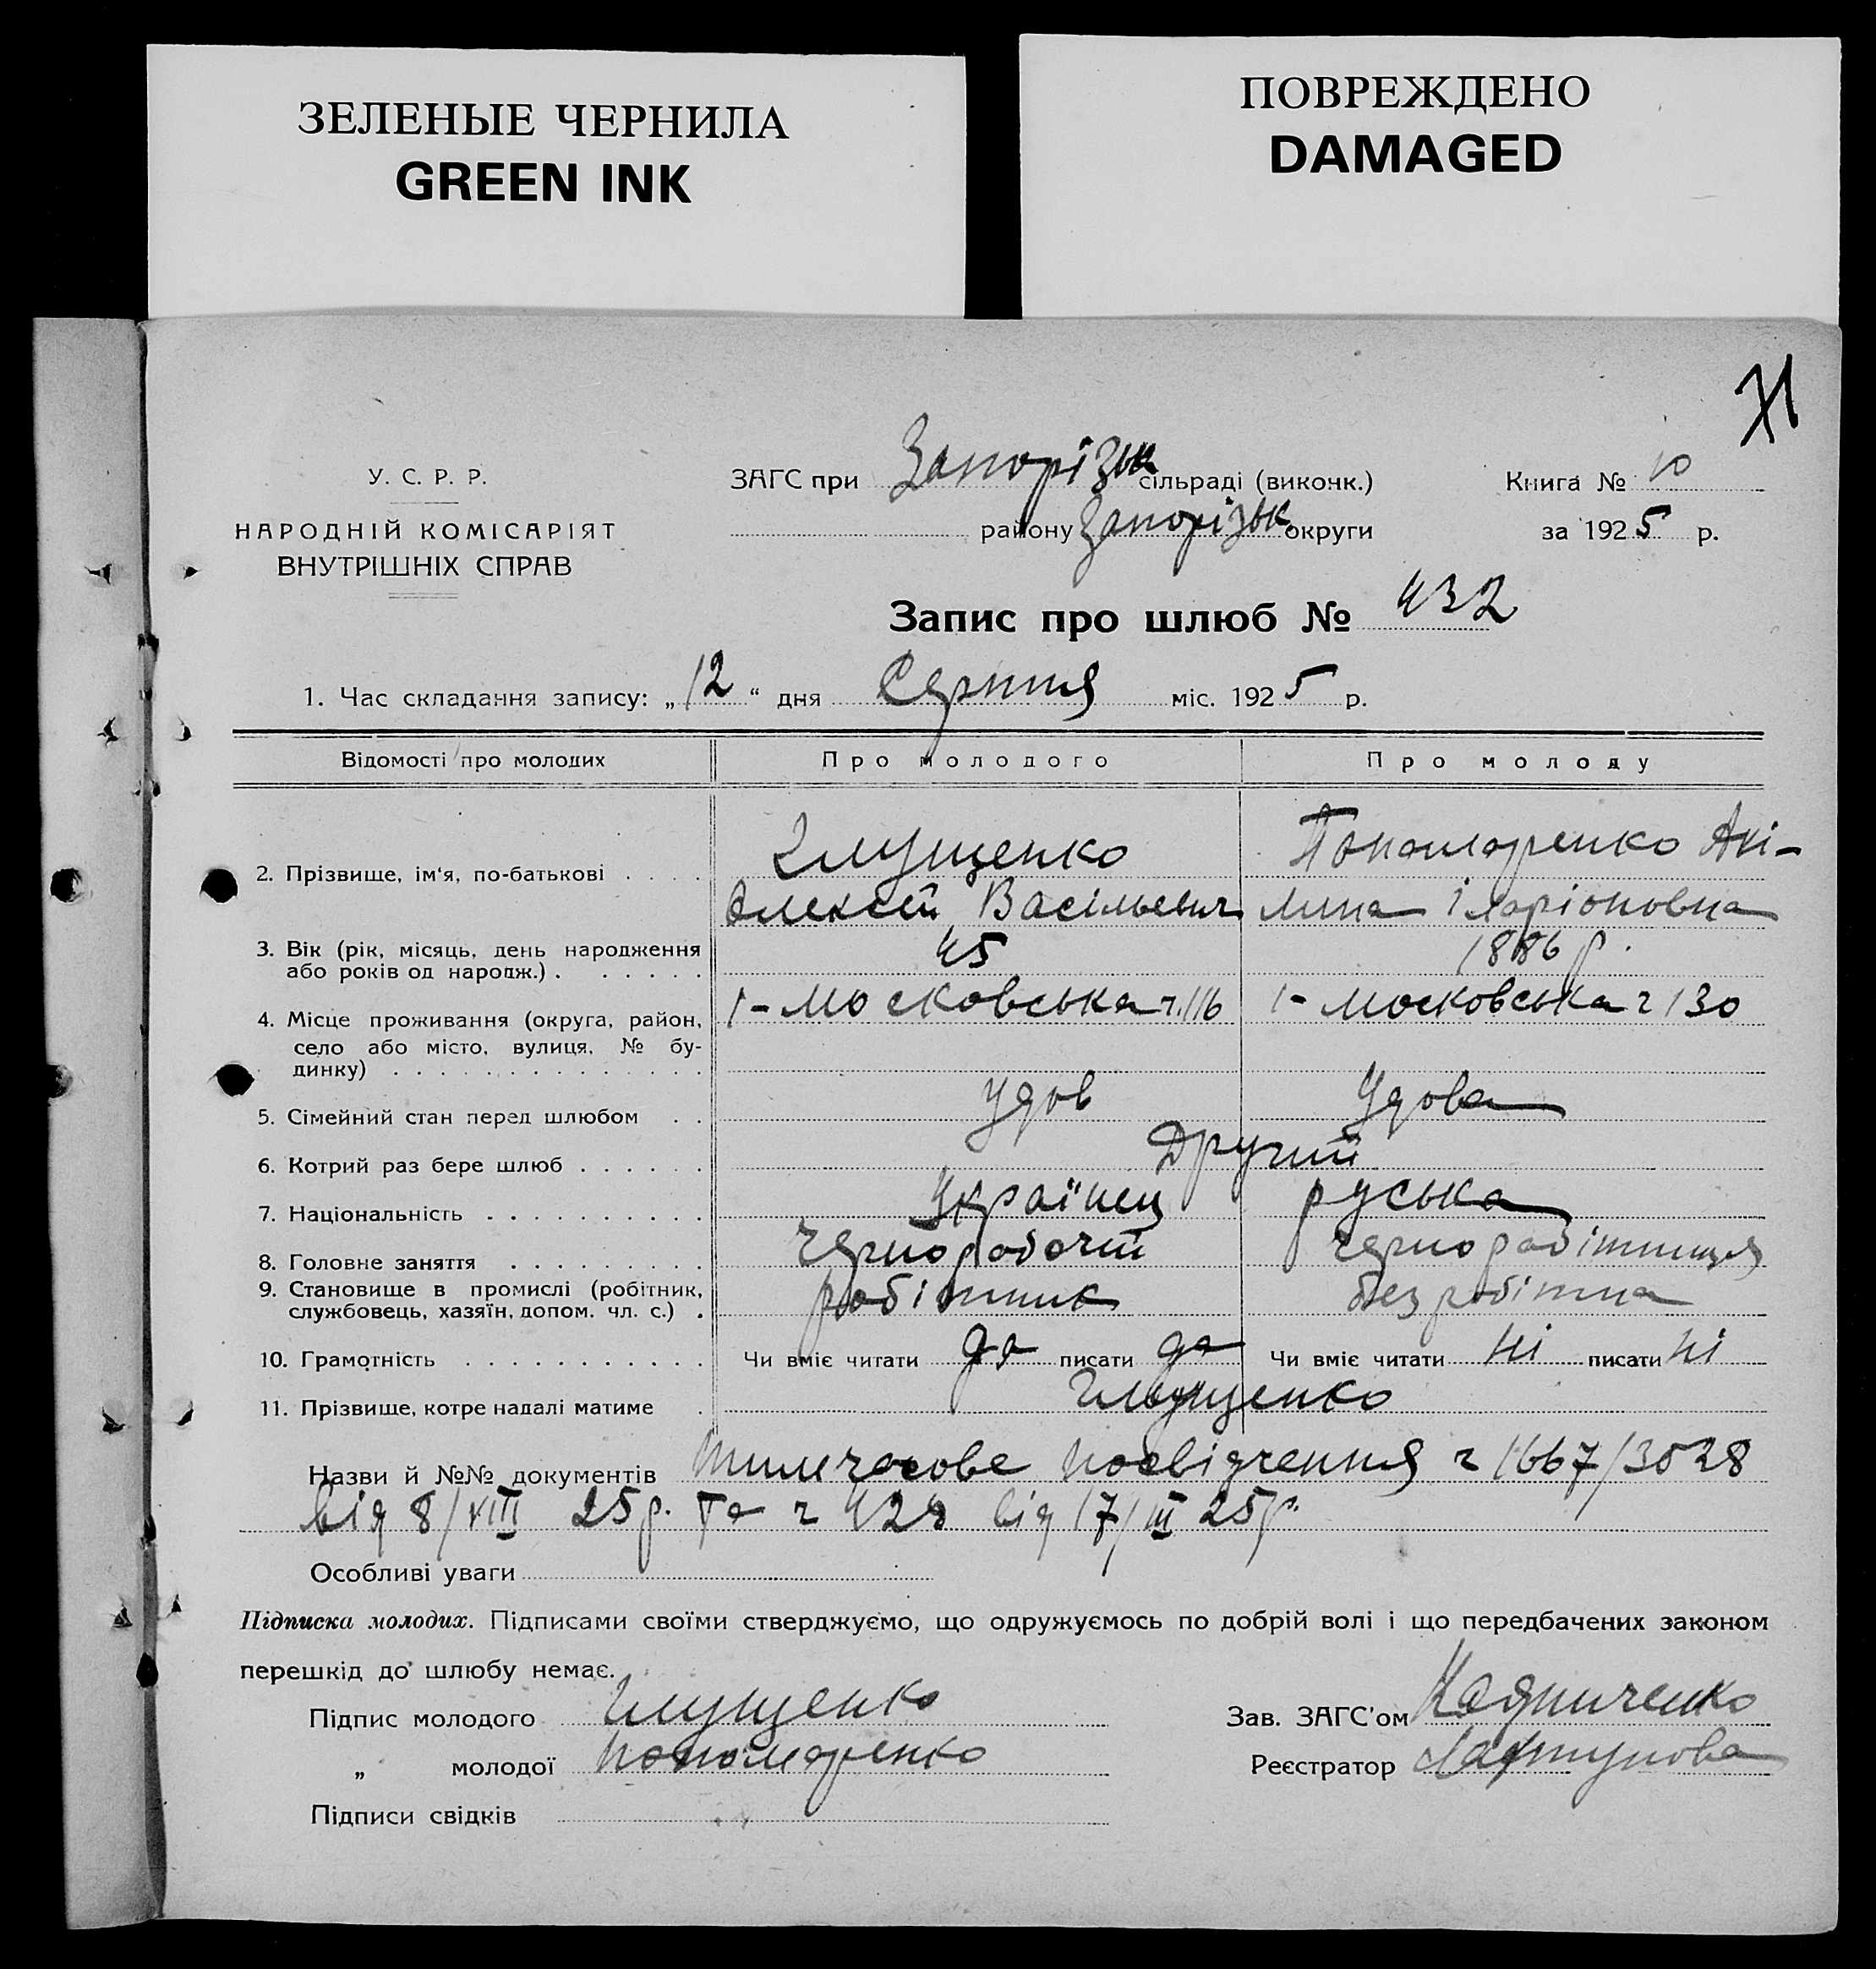 ЗЕЛЕНЫЕ ЧЕРНИЛА
GREEN INK
ПОВРЕЖДЕНО
DAMAGED
71
У. С. Р. Р.
НАРОДНІЙ КОМІСАРІЯТ
ВНУТРІШНІХ СПРАВ
ЗАГС при Запорізьк сільраді (виконк.)
району Запорізьк округи
Книга № 10
за 1925 р.
Запис про шлюб № 432
1. Час складання запису: „12“ дня Серпня міс. 1925 р.
Відомості про молодих Про молодого Про молоду
2. Прізвище, ім‘я, по-батькові . . . . Глущенко Пономаренко Акі-
Олексій Васільевич лина Іларіоновна
3. Вік (рік, місяць, день народження
або років од народж.) . . . . . . 45 1886 р.
4. Місце проживання (округа, район, 1-Московська ч.116 1-Московська ч 130
село або місто, вулиця, № бу-
динку) . . . . . . . . . . . . . .
5. Сімейний стан перед шлюбом . . удов Удова
6. Котрий раз бере шлюб . . . . . . Другий
7. Національність . . . . . . . . . . Українец руська
8. Головне заняття . . . . . . . . . чернорабочий чернорабітниця
9. Становище в промислі (робітник,
службовець, хазяїн, допом. чл. с.) . робітник безробітна
10. Грамотність . . . . . . . . . . . Чи вміє читати да писати да Чи вміє читати Ні писати Ні
11. Прізвище, котре надалі матиме . Глущенко
Назви й №№ документів тимчасове посвідчення ч 1667/3028
від 8/VIII 25 р. та ч 428 від 17/III 25 р.
Особливі уваги
Підписка молодих. Підписами своїми стверджуємо, що одружуємось по добрій волі і що передбачених законом
перешкід до шлюбу немає.
Підпис молодого Глущенко
„ молодої Пономаренко
Підписи свідків
Зав. ЗАГС'ом
Реєстратор